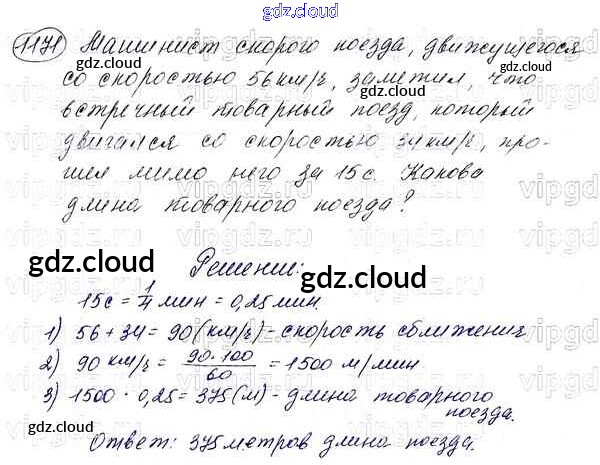 gdz.cloud
1171 Машинист скорого поезда, движущегося
со скоростью 56 км/ч, заметил, что
встречный товарный поезд, который
двигался со скоростью 34 км/ч, про-
шел мимо него за 15 с. Какова
длина товарного поезда?
Решение:
15 с = 1/4 мин = 0,25 мин.
1) 56 + 34 = 90 (км/ч) - скорость сближения
2) 90 км/ч = 90·100/60 = 1500 м/мин
3) 1500 · 0,25 = 375 (м) - длина товарного
поезда.
Ответ: 375 метров длина поезда.
gdz.cloud
gdz.cloud
gdz.cloud
gdz.cloud
gdz.cloud